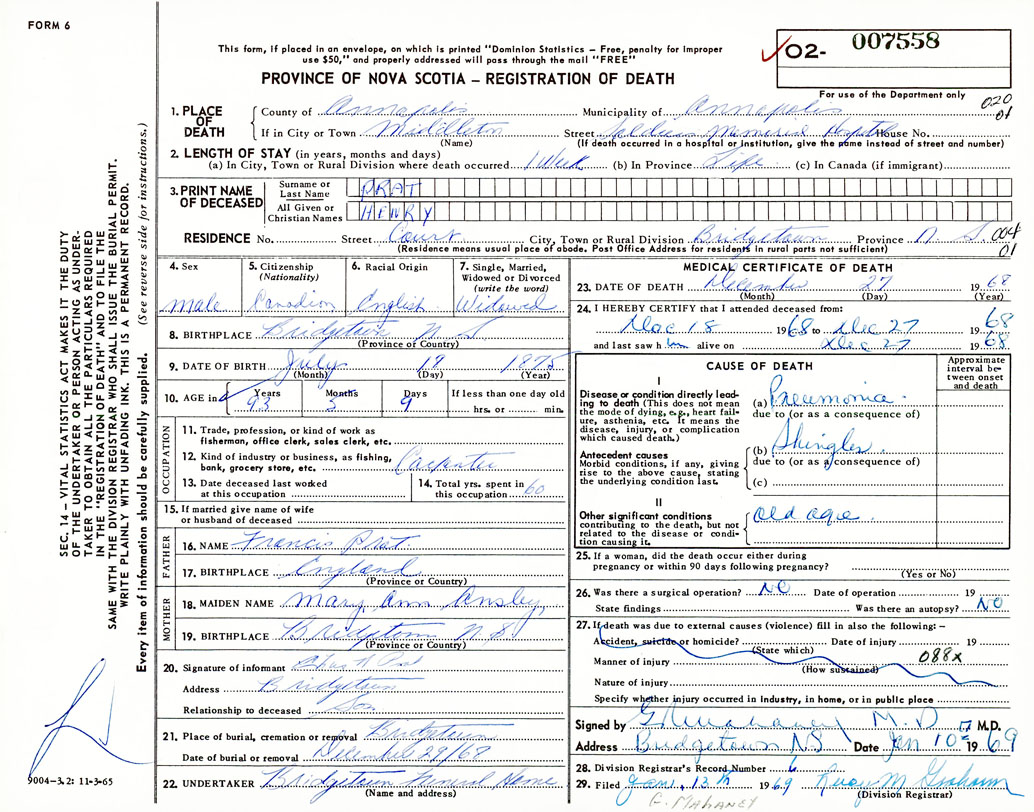 FORM 6
This form, if placed in an envelope, on which is printed "Dominion Statistics – Free, penalty for improper
use $50," and properly addressed will pass through the mail "FREE"
PROVINCE OF NOVA SCOTIA – REGISTRATION OF DEATH
O2- 007558
For use of the Department only
020
01
1. PLACE OF DEATH
County of Annapolis Municipality of Annapolis
If in City or Town Middleton Street Soldiers Memorial Hospital House No.
(Name) (If death occurred in a hospital or institution, give the name instead of street and number)
2. LENGTH OF STAY (in years, months and days)
(a) In City, Town or Rural Division where death occurred 1 Week (b) In Province Life (c) In Canada (if immigrant)
3. PRINT NAME OF DECEASED
Surname or Last Name PRAT
All Given or Christian Names HENRY
RESIDENCE No. Street Court City, Town or Rural Division Bridgetown Province N S
(Residence means usual place of abode. Post Office Address for residents in rural parts not sufficient)
004
01
4. Sex
male
5. Citizenship
(Nationality)
Canadian
6. Racial Origin
English
7. Single, Married,
Widowed or Divorced
(write the word)
Widowed
8. BIRTHPLACE Bridgetown N S
(Province or Country)
9. DATE OF BIRTH July 19 1875
(Month) (Day) (Year)
10. AGE in
Years Months Days If less than one day old
93 9 hrs. or min.
OCCUPATION
11. Trade, profession, or kind of work as
fisherman, office clerk, sales clerk, etc.
12. Kind of industry or business, as fishing,
bank, grocery store, etc. Carpenter
13. Date deceased last worked
at this occupation
14. Total yrs. spent in
this occupation 60
15. If married give name of wife
or husband of deceased
FATHER
16. NAME Francis Prat
17. BIRTHPLACE England
(Province or Country)
MOTHER
18. MAIDEN NAME Mary Ann
19. BIRTHPLACE Bridgetown N S
(Province or Country)
20. Signature of informant
Address Bridgetown
Relationship to deceased Son
21. Place of burial, cremation or removal Bridgetown
Date of burial or removal December 29/68
22. UNDERTAKER Bridgetown Funeral Home
(Name and address)
MEDICAL CERTIFICATE OF DEATH
23. DATE OF DEATH December 27 1968
(Month) (Day) (Year)
24. I HEREBY CERTIFY that I attended deceased from:
Dec 18 1968 to Dec 27 1968
and last saw him alive on Dec 27 1968
CAUSE OF DEATH
Approximate
interval be-
tween onset
and death
I
Disease or condition directly lead-
ing to death (This does not mean
the mode of dying, e.g., heart fail-
ure, asthenia, etc. It means the
disease, injury, or complication
which caused death.)
(a) Pneumonia
due to (or as a consequence of)
Antecedent causes
Morbid conditions, if any, giving
rise to the above cause, stating
the underlying condition last.
(b) Shingles
due to (or as a consequence of)
(c)
II
Other significant conditions
contributing to the death, but not
related to the disease or condi-
tion causing it.
old age
25. If a woman, did the death occur either during
pregnancy or within 90 days following pregnancy?
(Yes or No)
26. Was there a surgical operation? NO Date of operation 19
State findings Was there an autopsy? NO
27. If death was due to external causes (violence) fill in also the following: –
Accident, suicide or homicide? Date of injury 19
(State which)
088x
Manner of injury
(How sustained)
Nature of injury
Specify whether injury occurred in Industry, in home, or in public place
Signed by M.D M.D.
Address Bridgetown NS Date Jan 10 1969
28. Division Registrar's Record Number
29. Filed Jan. 13th 1969 M Graham
(Division Registrar)
E. MAHANEY
SEC. 14 – VITAL STATISTICS ACT MAKES IT THE DUTY
OF THE UNDERTAKER OR PERSON ACTING AS UNDER-
TAKER TO OBTAIN ALL THE PARTICULARS REQUIRED
IN THE "REGISTRATION OF DEATH" AND TO FILE THE
SAME WITH THE DIVISION REGISTRAR WHO SHALL ISSUE THE BURIAL PERMIT.
WRITE PLAINLY WITH UNFADING INK. THIS IS A PERMANENT RECORD.
Every item of information should be carefully supplied. (See reverse side for instructions.)
9004-3.2: 11-3-65